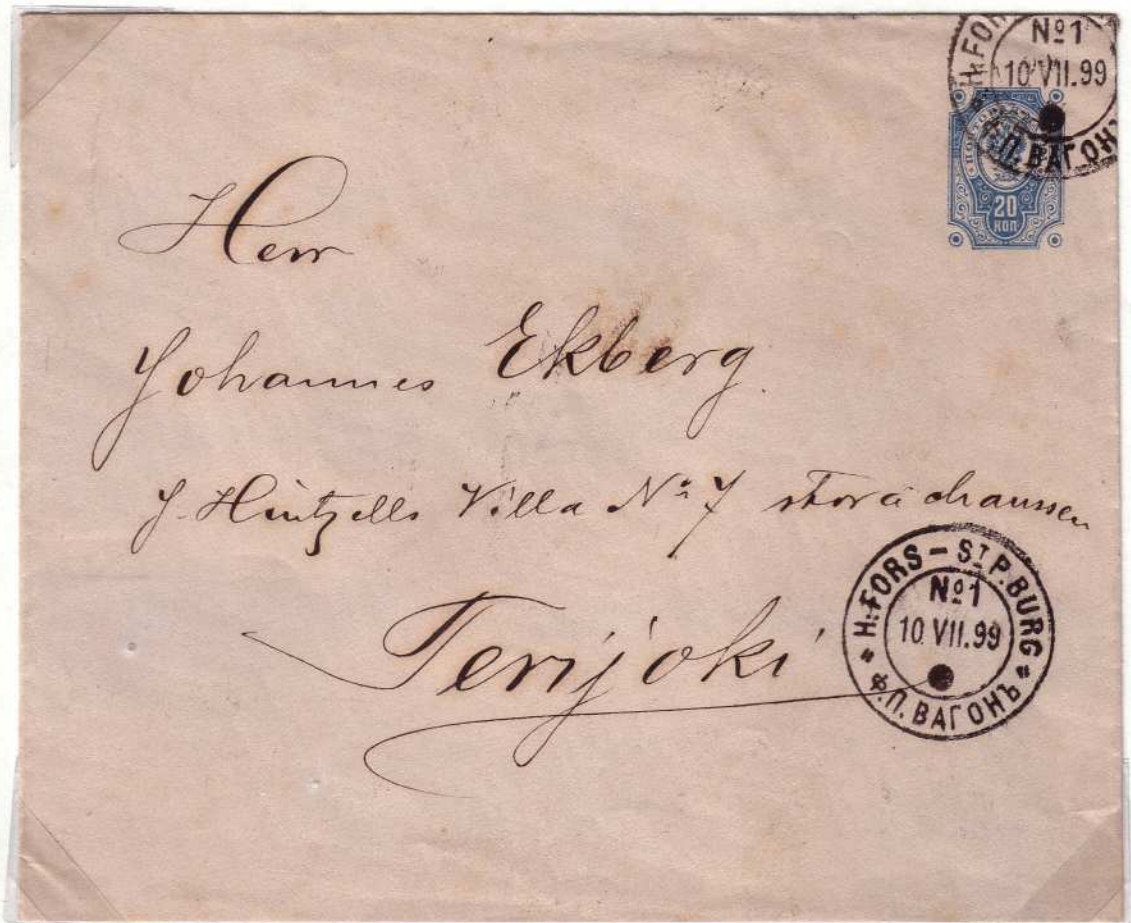 H:FORS
№1
10 VII.99
Ф.П. ВАГОНЪ
20
КОП
Herr
Johannes Ekberg
J. Hintzells Villa № 7 stora chaussen
Terijoki
H:FORS - ST P.BURG
№1
10 VII.99
Ф.П. ВАГОНЪ